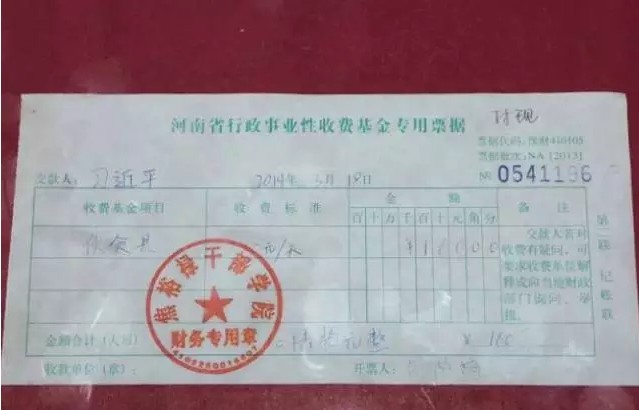 付现
河南省行政事业性收费基金专用票据
票据代码:豫财410105
票据批次:NA[2013]
№ 0541196
交款人:习近平 2014年3月18日
收费基金项目 收费标准 金额 备注
百十万千百十元角分
伙食费 元/天 ¥16000
交款人若对
收费有疑问,可
要求收费单位解
释或向当地财政
部门询问、举
报。
第二联 记账联
焦裕禄干部学院
财务专用章
金额合计(大写) 整 ¥160
收款单位(章): 开票人: